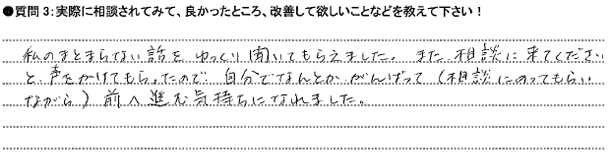 ●質問３：実際に相談されてみて、良かったところ、改善して欲しいことなどを教えて下さい！
私のまとまらない話を ゆっくり聞いてもらえました。また相談に来てください
と、声をかけてもらったので 自分でなんとか がんばって（相談にのってもらい
ながら）前へ進む気持ちになれました。